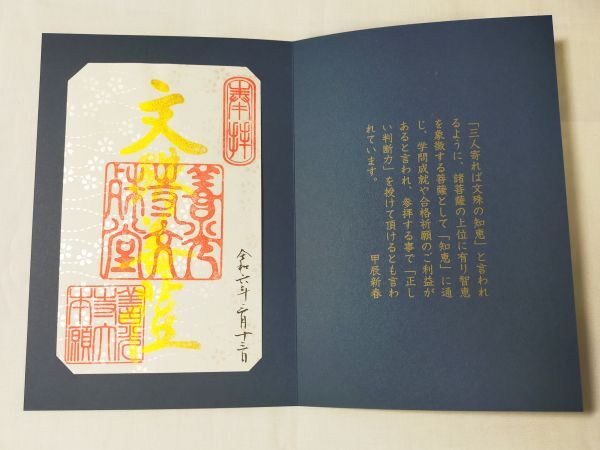 「三人寄れば文殊の知恵」と言われ
るように、諸菩薩の上位に有り智恵
を象徴する菩薩として「知恵」に通
じ、学問成就や合格祈願のご利益が
あると言われ、参拝する事で「正し
い判断力」を授けて頂けるとも言わ
れています。
甲辰新春
奉拝
令和六年二月十三日
文殊菩薩
善光
寺文
殊堂
善光
寺大
本願